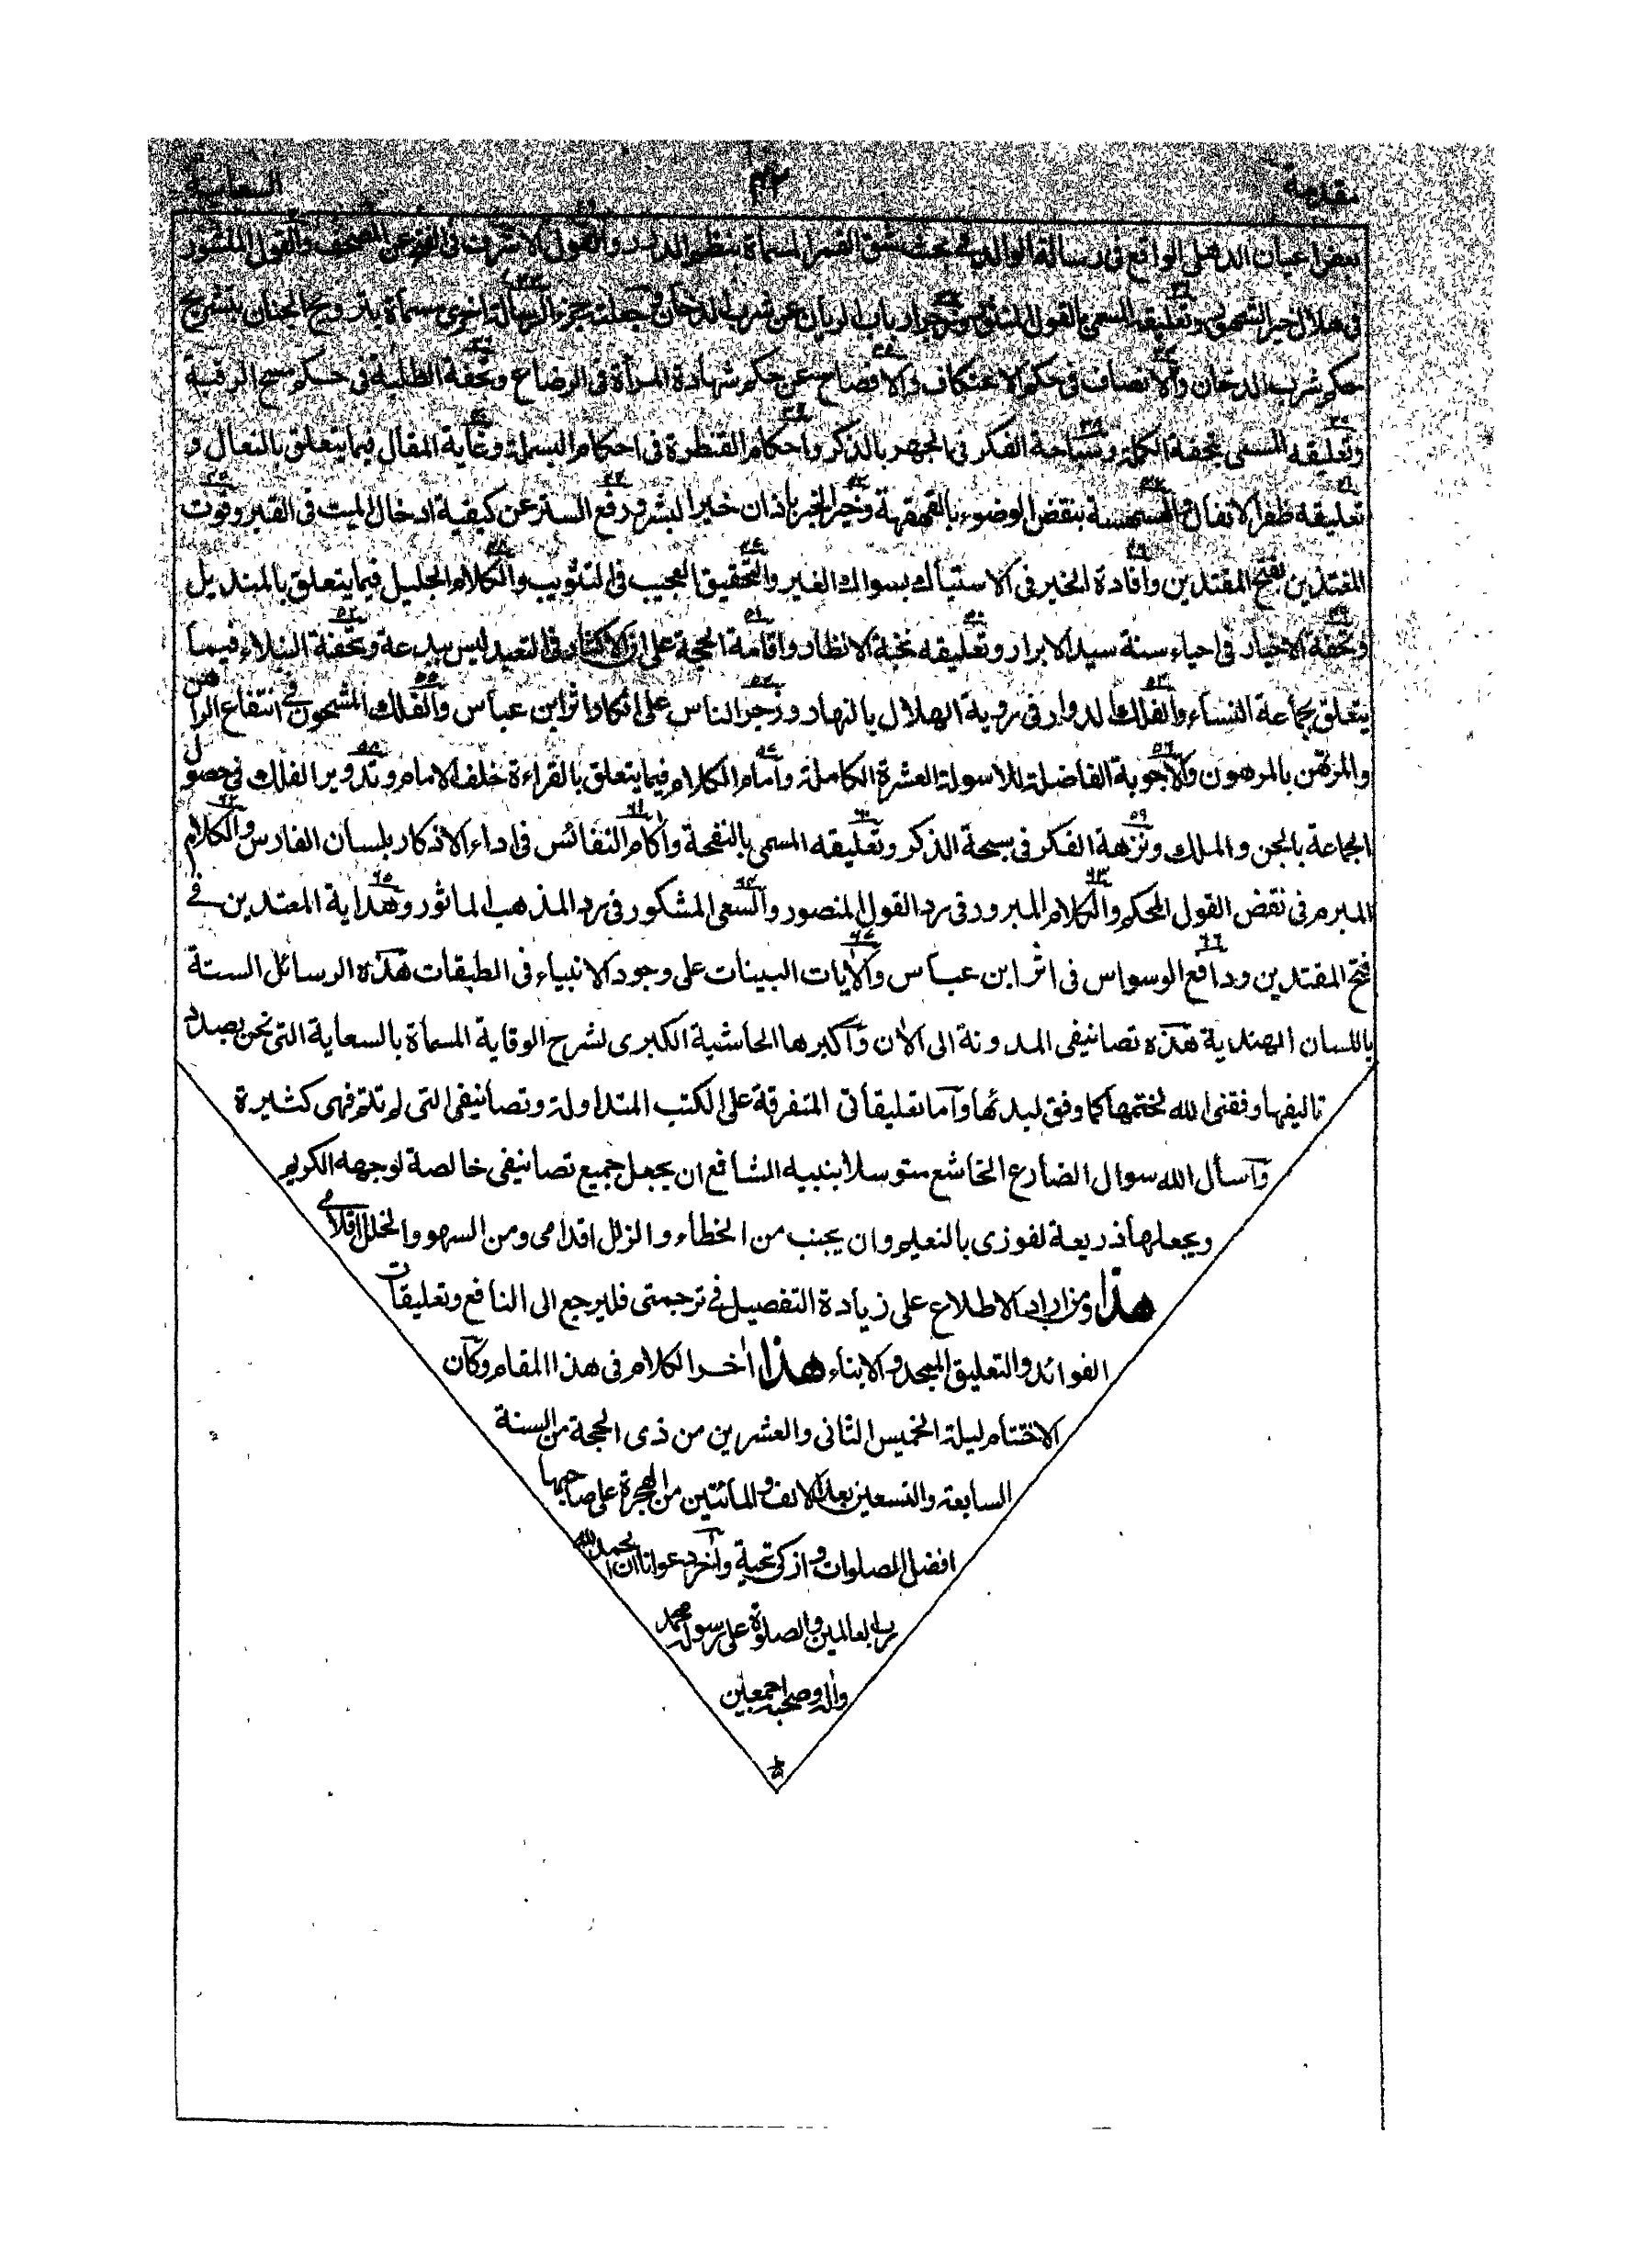 مقدمة ٤٢ السعاية
بعض اعيان الدهلى الواقع فى رسالة الوالد فى بحث شق القمر المسماة بنظم الدرر والقول الاشرف فى الفتح عن المصحف والقول المنشور
فى هلال خير الشهور وتعليقه المسمى بالقول المنثور وزجر ارباب الريان عن شرب الدخان وجعلته جزء الرسالة اخرى مسماة بترويح الجنان بتشريح
حكم شرب الدخان والانصاف فى حكم الاعتكاف والافصاح عن حكم شهادة المرأة فى الرضاع وتحفة الطلبة فى حكم مسح الرقبة
وتعليقه المسمى بتحفة الكملة وسباحة الفكر فى الجهر بالذكر واحكام القنطرة فى احكام البسملة وغاية المقال فيما يتعلق بالنعال و
تعليقه ظفر الانفال والهسهسة بنقض الوضوء بالقهقهة وخير الخبر باذان خير البشر ورفع الستر عن كيفية ادخال الميت فى القبر وقوت
المغتذين بفتح المقتدين وافادة الخير فى الاستياك بسواك الغير والتحقيق العجيب فى التثويب والكلام الجليل فيما يتعلق بالمنديل
وتحفة الاخيار فى احياء سنة سيد الابرار وتعليقه نخبة الانظار واقامة الحجة على ان الاكثار فى التعبد ليس ببدعة وتحفة النبلاء فيما
يتعلق بجماعة النساء والفلك الدوار فى رؤية الهلال بالنهار وزجر الناس على انكار اثر ابن عباس والفلك المشحون فى انتفاع الراهن
والمرتهن بالمرهون والاجوبة الفاضلة للاسولة العشرة الكاملة وامام الكلام فيما يتعلق بالقراءة خلف الامام وتدوير الفلك فى حصول
الجماعة بالجن والملك ونزهة الفكر فى سبحة الذكر وتعليقه المسمى بالنفحة وآكام النفائس فى اداء الاذكار بلسان الفارس والكلام
المبرم فى نقض القول المحكم والكلام المبرور فى رد القول المنصور والسعى المشكور فى رد المذهب الماثور وهداية المعتدين فى
فتح المقتدين ودافع الوسواس فى اثر ابن عباس والآيات البينات على وجود الانبياء فى الطبقات هذه الرسائل الستة
باللسان الهندية هذه تصانيفى المدونة الى الآن واكبرها الحاشية الكبرى لشرح الوقاية المسماة بالسعاية التى نحن بصدد
تاليفها وفقنى الله لختمها كما وفق لبدئها وآما تعليقاتى المتفرقة على الكتب المتداولة وتصانيفى التى لم تتم فهى كثيرة
وآسأل الله سوال الضارع الخاشع متوسلا بنبيه الشافع ان يجعل جميع تصانيفى خالصة لوجهه الكريم
ويجعلها ذريعة لفوزى بالنعيم وان يجنب من الخطاء والزلل اقدامى ومن السهو والخلل اقلامى
هذا ومن اراد الاطلاع على زيادة التفصيل فى ترجمتى فليرجع الى النافع وتعليقات
الفوائد والتعليق الممجد والابناء هذا آخر الكلام فى هذا المقام وكان
الاختتام ليلة الخميس الثانى والعشرين من ذى الحجة من السنة
السابعة والتسعين بعد الالف والمائتين من الهجرة على صاحبها
افضل الصلوات وازكى تحية وآخر دعوانا ان الحمد لله
رب العالمين والصلوة على رسوله محمد
وآله وصحبه اجمعين